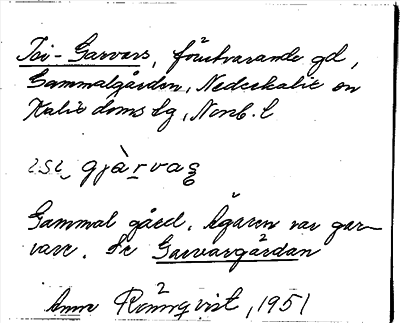 Isi-Garvars, försvarande gd,
Gammalgården, Nederkalix en
Kalix doms lg, Norrb. l
ɪsɪ, gjàrvaʂ
Gammal gård. Ägaren var gar-
vare. Se Garvargårdan
Anna Rönnqvist, 1951